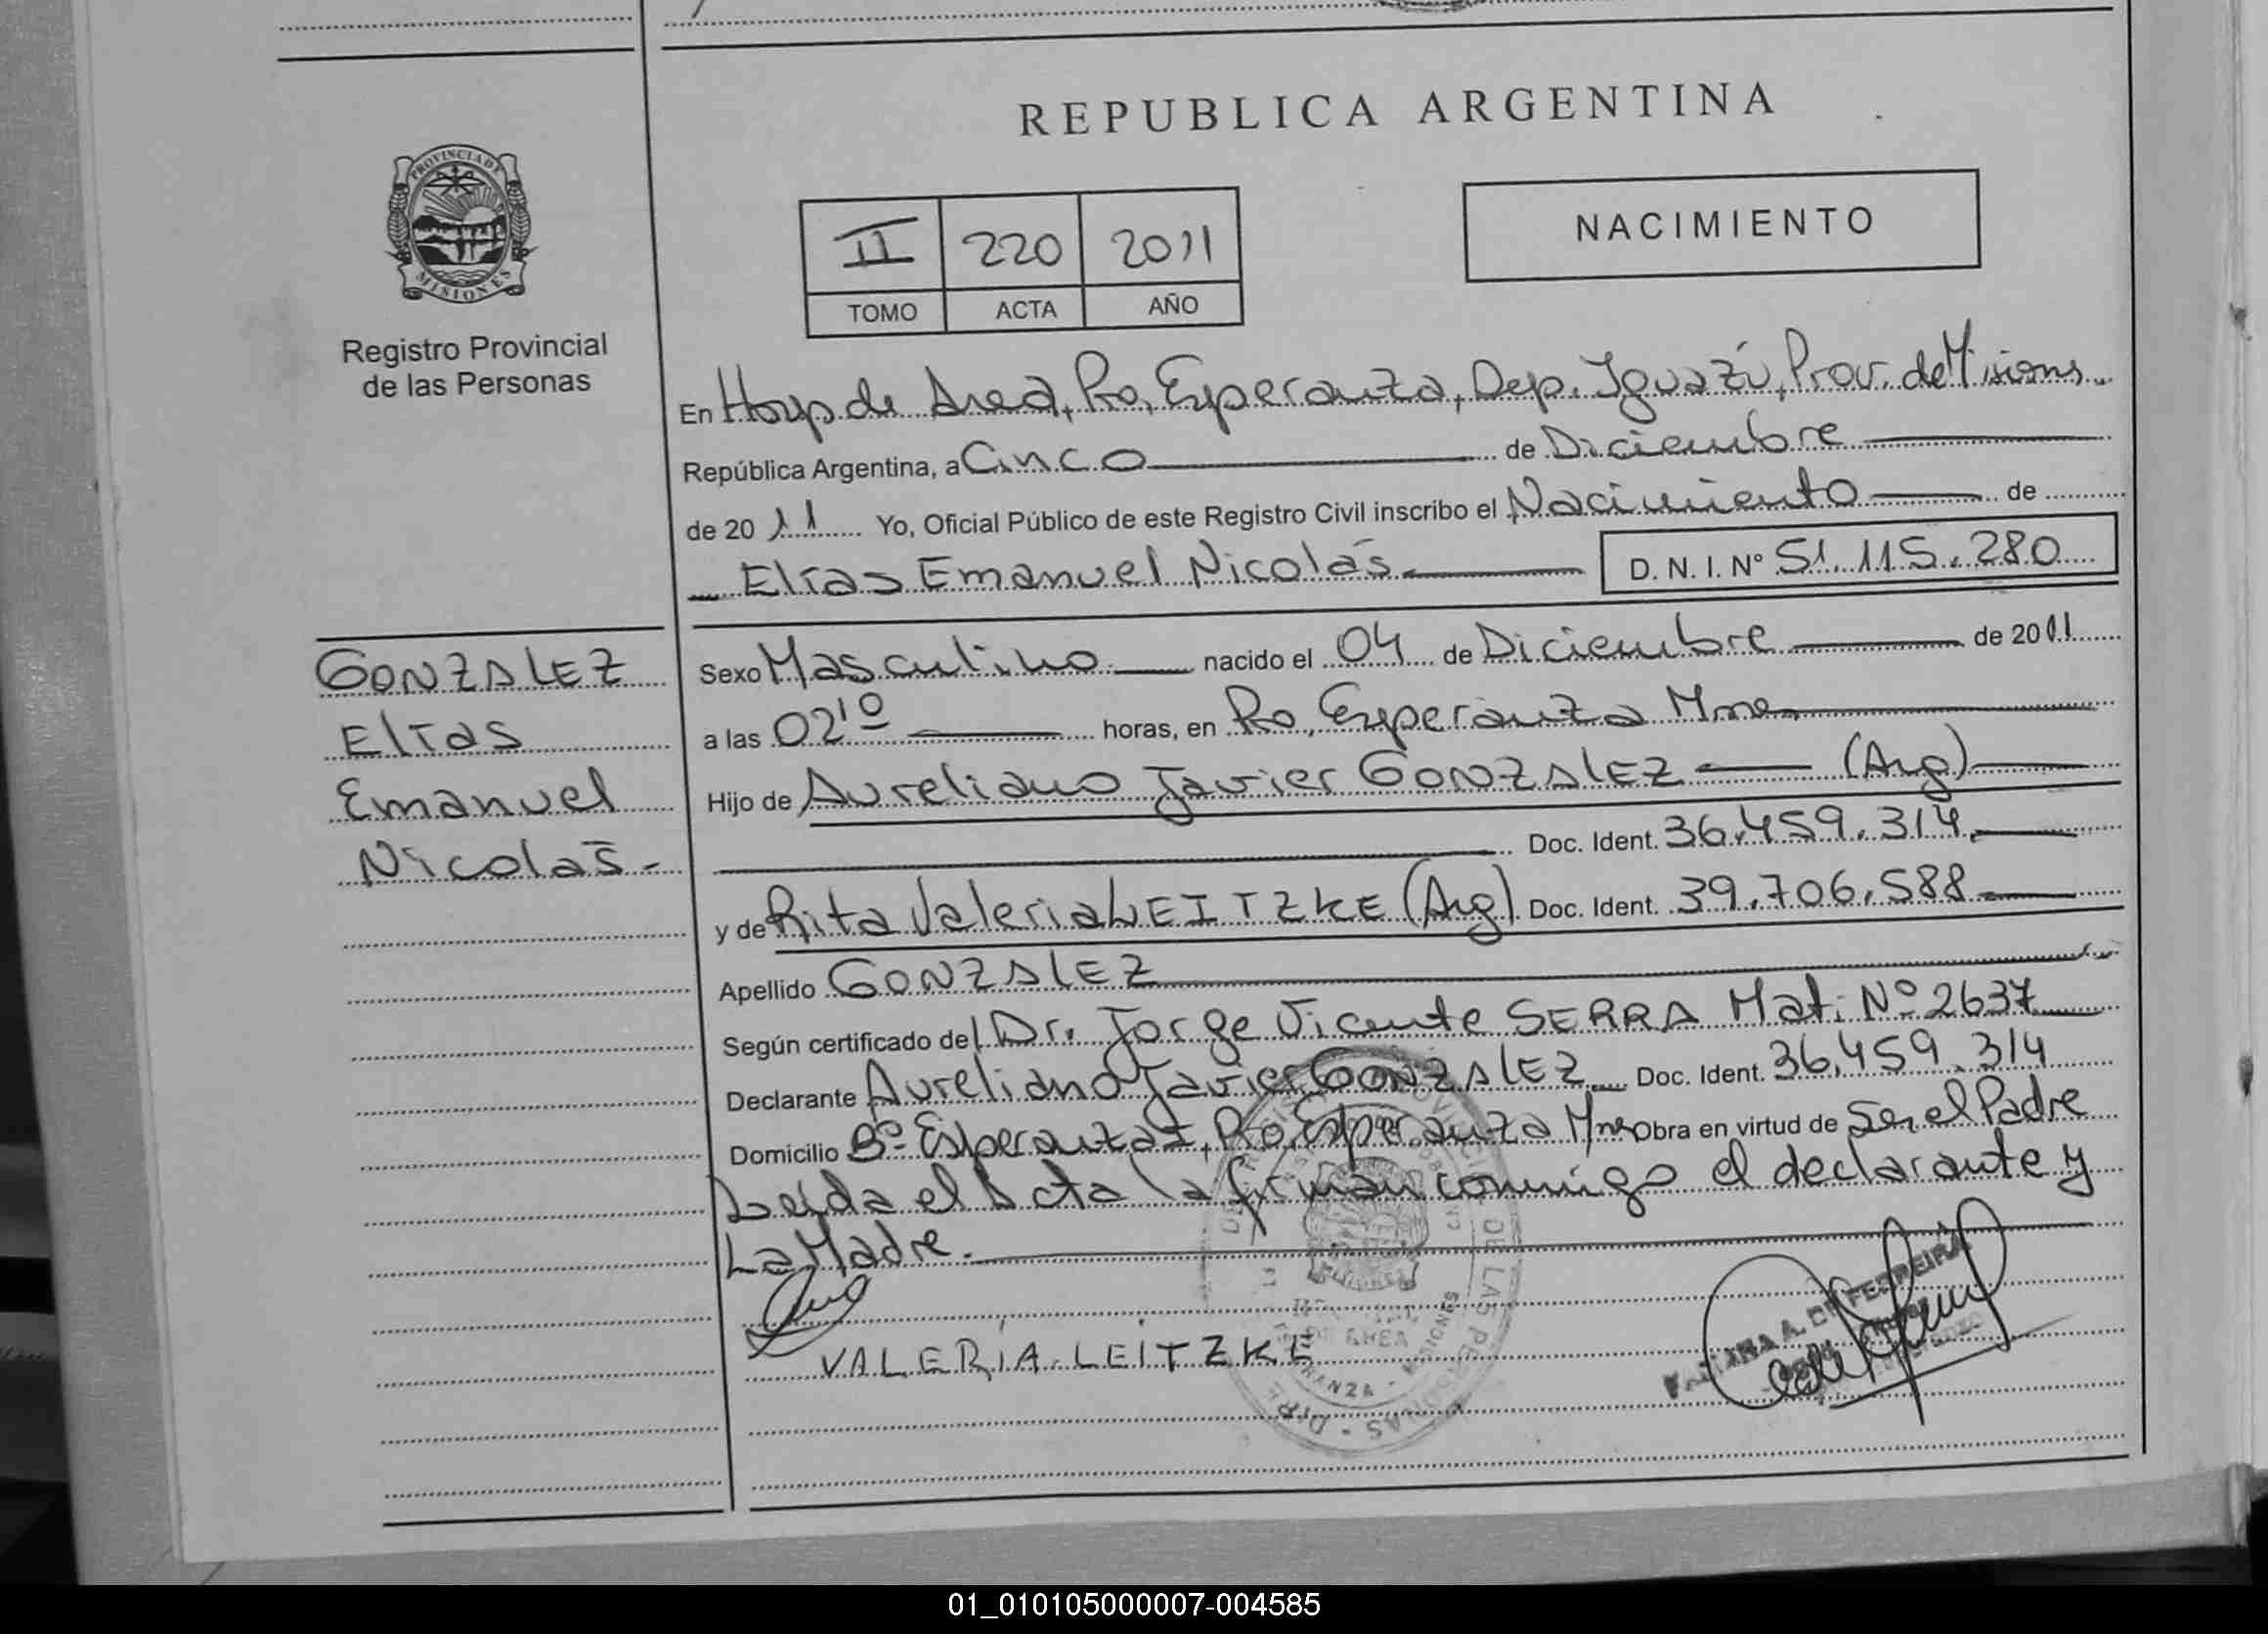 REPUBLICA ARGENTINA
PROVINCIA DE
MISIONES
Registro Provincial
de las Personas
II 220 2011
TOMO ACTA AÑO
NACIMIENTO
En Hosp. de Area, Pto, Esperanza, Dep. Iguazú, Prov. de Misiones
República Argentina, a Cinco de Diciembre
de 20 11 Yo, Oficial Público de este Registro Civil inscribo el Nacimiento de
Elías Emanuel Nicolás D. N. I. Nº 51.115.280
GONZALEZ
Elías
Emanuel
Nicolás -
Sexo Masculino nacido el 04 de Diciembre de 2011
a las 02¹⁰ horas, en Pto, Esperanza Mnes
Hijo de Aureliano Javier GONZALEZ (Arg)
Doc. Ident. 36.459.314,
y de Rita Valeria LEITZKE (Arg) Doc. Ident. 39.706.588
Apellido GONZALEZ
Según certificado del Dr. Jorge Vicente SERRA Mat. Nº 2637
Declarante Aureliano Javier GONZALEZ Doc. Ident. 36.459.314
Domicilio Bº Esperanza I, Pto, Esperanza Mnes Obra en virtud de Ser el Padre
Leída el Acta la firman conmigo el declarante y
La Madre.
VALERIA LEITZKE
A. DE FERREIRA
01_010105000007-004585